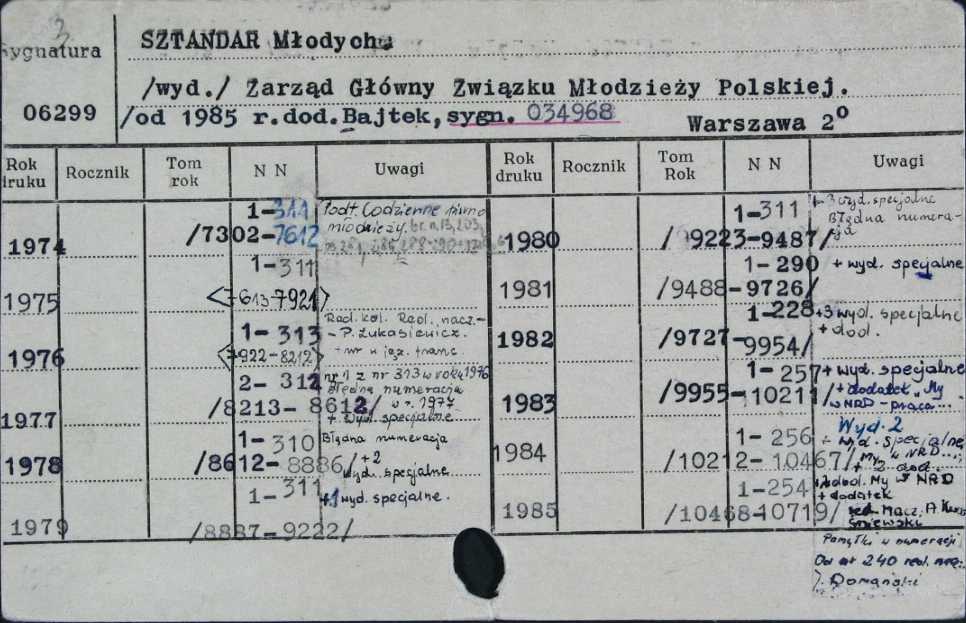 3
Sygnatura
06299
SZTANDAR Młodych
/wyd./ Zarząd Główny Związku Młodzieży Polskiej.
/od 1985 r.dod.Bajtek, sygn. 034968
Warszawa 2⁰
Rok druku Rocznik Tom rok N N Uwagi
1974 /7302-7612 1-311 Podt. Codzienne
młodzieży.
1975 1-311
<7613-7921>
1976 1-313 Red. kol. Red. nacz.-
- P. Łukasiewicz.
<7922-8212>
1977 2-312 nr 1 z nr 313 w roku 1976
błędna numeracja
w r. 1977
/8213-8612/ + wyd. specjalne
1978 1-310 Błędna numeracja
/8612-8886/ +2
wyd. specjalne
1979 1-311 +1 wyd. specjalne.
/8887-9222/
Rok druku Rocznik Tom Rok N N Uwagi
1980 1-311 wyd. specjalne
Błędna numera-
cja
/9223-9487/
1981 1-290 + wyd. specjalne
/9488-9726/
1982 1-228 +3 wyd. specjalne
+ dod.
/9727-9954/
1983 1-257 + wyd. specjalne
/9955-10211/ + dodatek "My
w NRD - praca...
1984 1-256 Wyd. 2
+ wyd. specjalne,
/10212-10467/ My w NRD...,
+ 2 dod.
1985 1-254 dod. My w NRD
+ dodatek
/10468-10719/ red. nacz. A.
śniewski
Pomyłki w numeracji
Od nr 240 red. nacz.
J. Domański